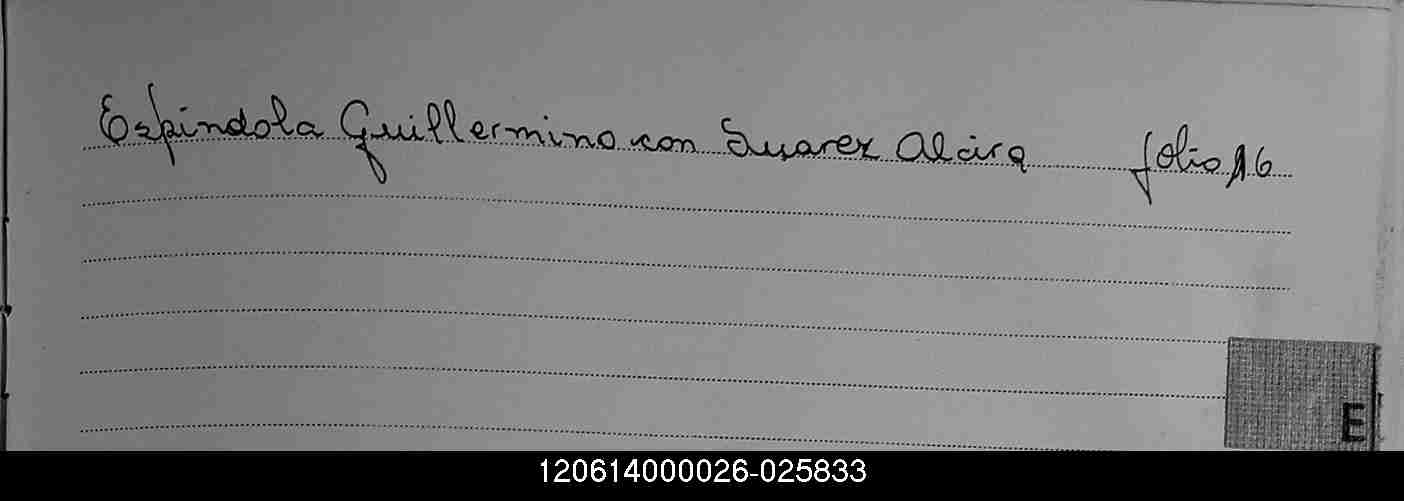 Espindola Guillermino con Suarez Alcira folio 16
E
120614000026-025833